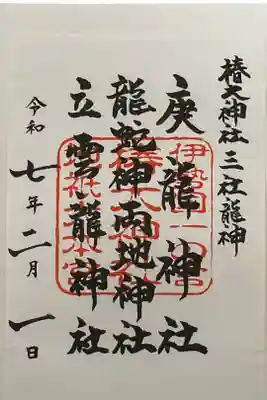 椿大神社三社龍神
庚龍神社
龍蛇神雨地神社
立雲龍神社
令和七年二月一日
伊勢国一之宮